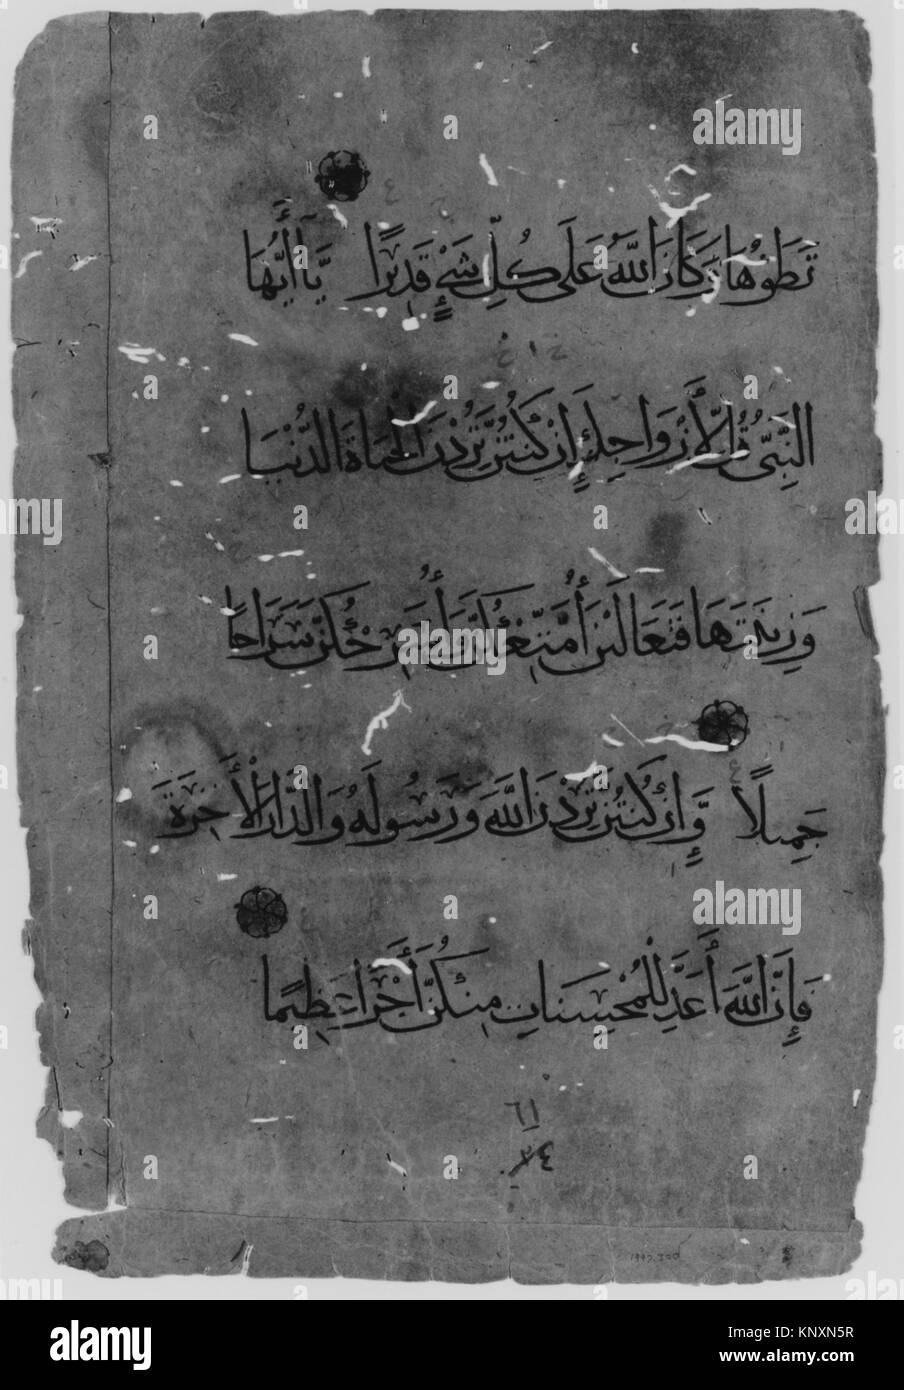 تَطَؤُهَا وَكَانَ اللَّهُ عَلَى كُلِّ شَيْءٍ قَدِيرًا يَا أَيُّهَا
النَّبِيُّ قُل لِّأَزْوَاجِكَ إِنْ كُنْتُنَّ تُرِدْنَ الْحَيَاةَ الدُّنْيَا
وَزِينَتَهَا فَتَعَالَيْنَ أُمَتِّعْكُنَّ وَأُسَرِّحْكُنَّ سَرَاحًا
جَمِيلًا وَّإِنْ كُنْتُنَّ تُرِدْنَ اللَّهَ وَرَسُولَهُ وَالدَّارَ الْأَخِرَةَ
فَإِنَّ اللَّهَ أَعَدَّ لِلْمُحْسِنَاتِ مِنْكُنَّ أَجْرًا عَظِيمًا
٦١
alamy
a
alamy
Image ID: KNXN5R
www.alamy.com